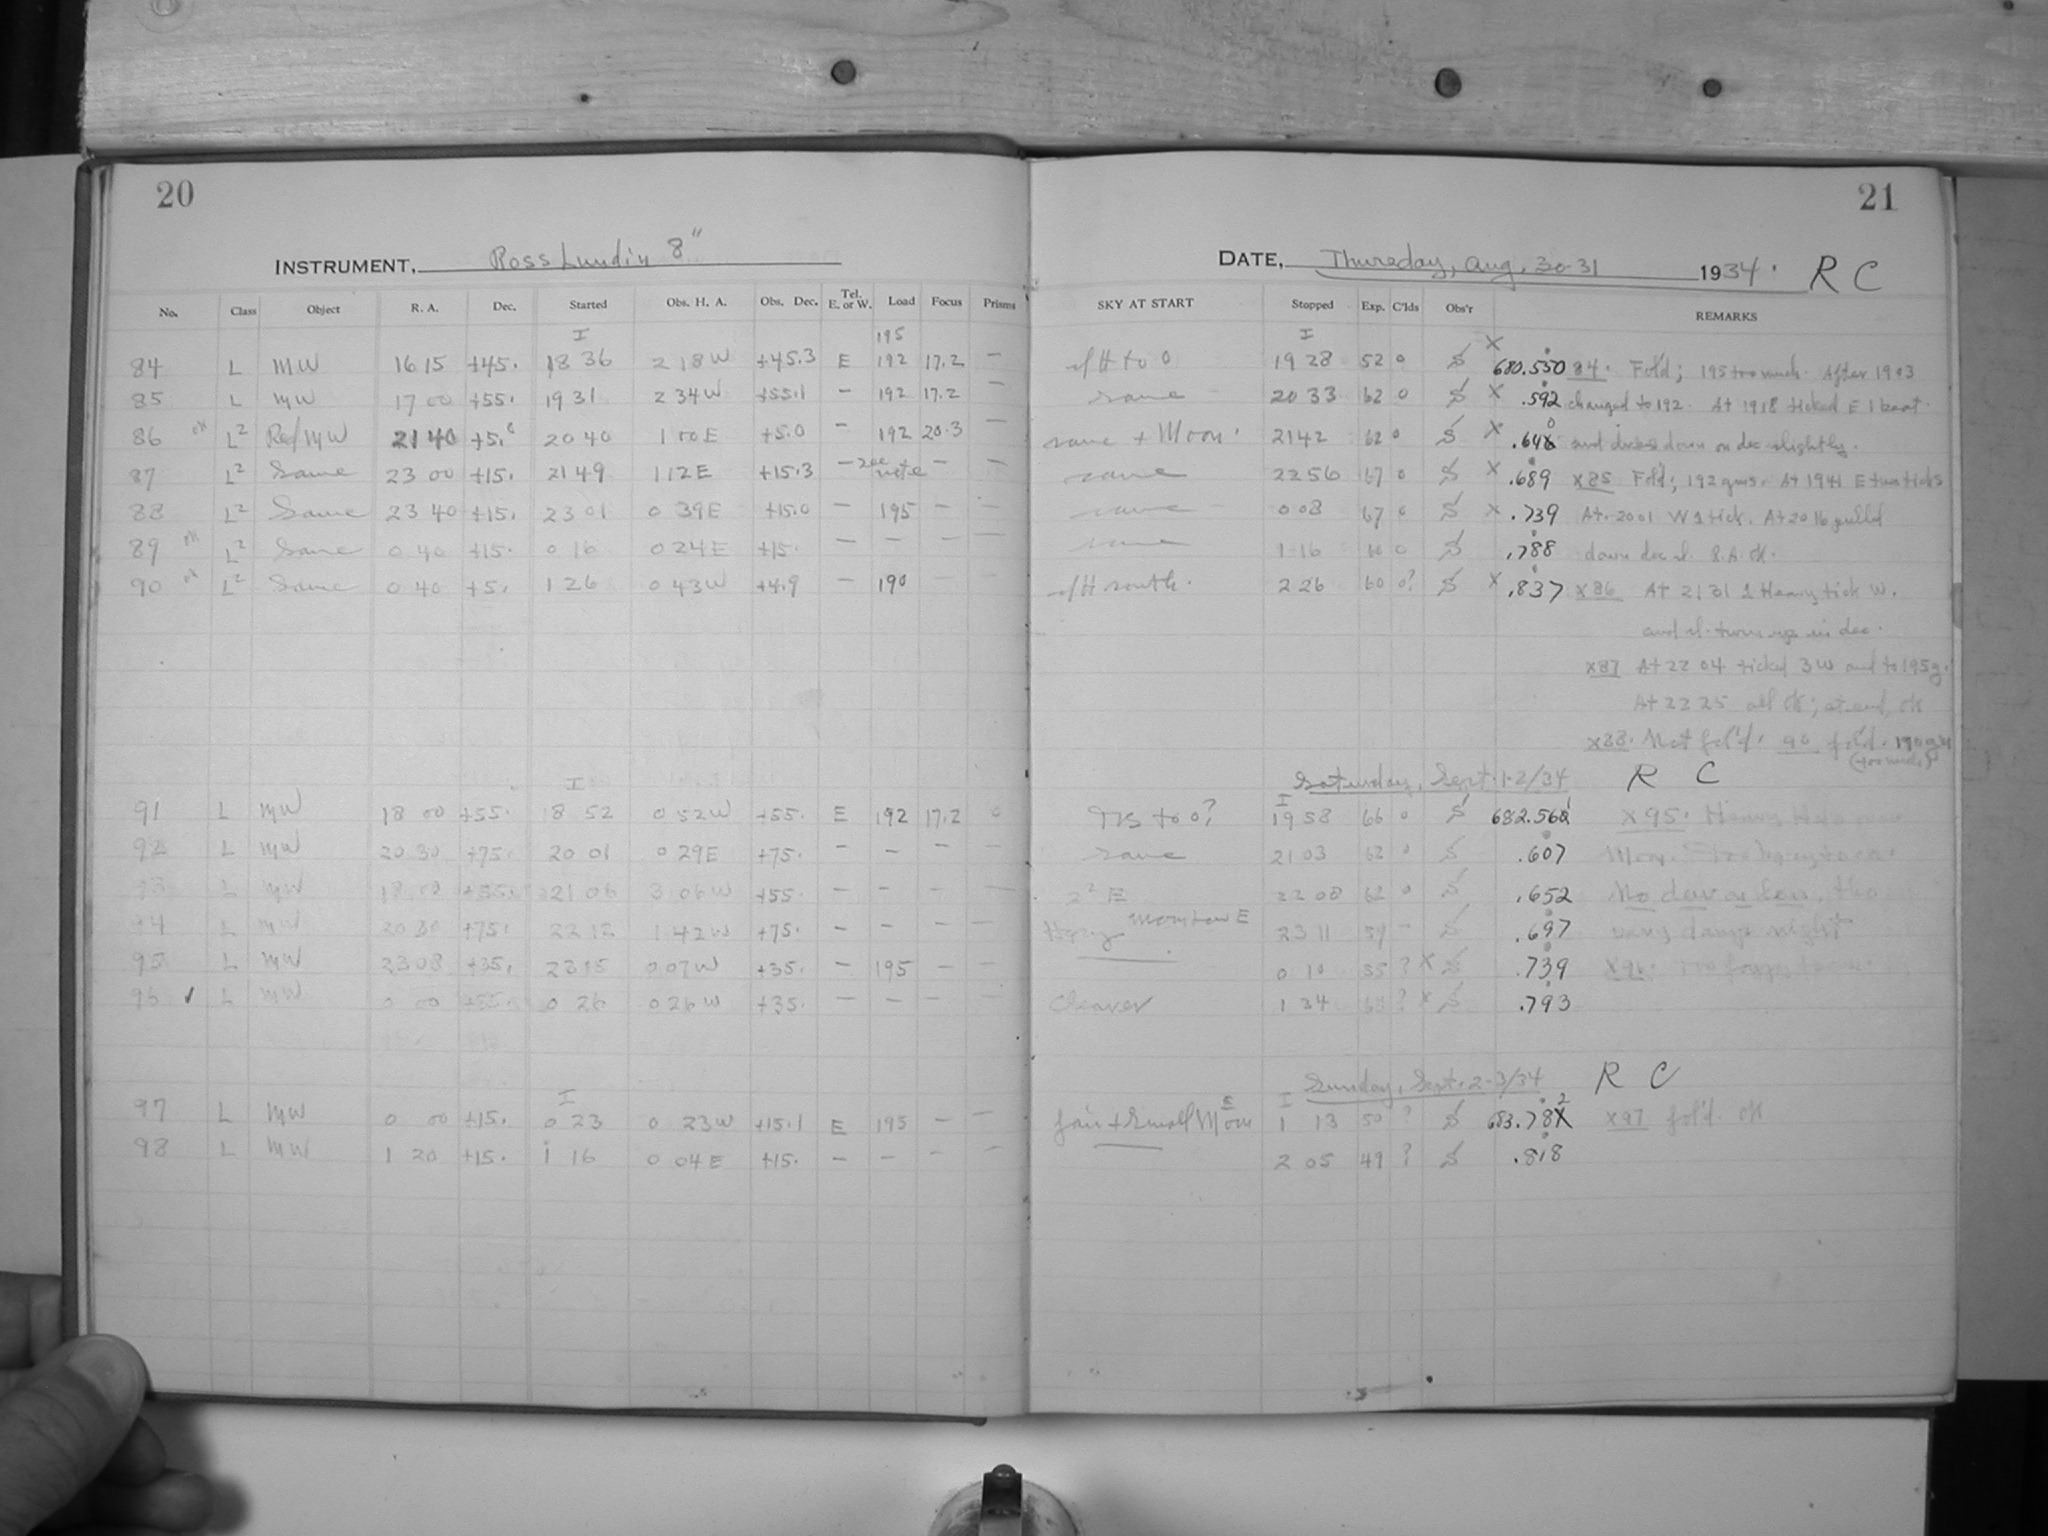 20
21
INSTRUMENT, Ross Lundin 8"
DATE, Thursday, Aug. 30-31 1934. R C
No. Class Object R. A. Dec. Started Obs. H. A. Obs. Dec. Tel. E. or W. Load Focus Prisms SKY AT START Stopped Exp. C'lds Obs'r REMARKS
I 195 I
84 L MW 16 15 +45. 18 36 2 18 W +45.3 E 192 17.2 — s/H to 0 19 28 52 0 S X 680.550 84. Fol'd; 195 too much. After 1903
85 L MW 17 00 +55. 19 31 2 34 W +55.1 — 192 17.2 — same 20 33 62 0 S X .592 changed to 192. At 1918 ticked E 1 beat.
86 ok L² Reg MW 21 40 +5.0 20 40 1 00 E +5.0 — 192 20.3 — same + Moon. 21 42 62 0 S X .640 and down on dec slightly.
87 L² Same 23 00 +15. 21 49 1 12 E +15.3 — see note — — same 22 56 67 0 S X .689 X85 Fol'd; 192 gms. At 1941 E two ticks
88 L² Same 23 40 +15. 23 01 0 39 E +15.0 — 195 — — same 0 08 67 0 S X .739 At 2001 W 1 tick. At 2016 pulled
89 ok L² Same 0 40 +15. 0 16 0 24 E +15. — — — — same 1 16 60 0 S .788 down dec sl. R.A. ok.
90 ok L² Same 0 40 +5. 1 26 0 43 W +4.9 — 190 — — s/H south. 2 26 60 0? S X .837 X86 At 2131 1 Heavy tick W.
and sl. turn up in dec.
X87 At 22 04 ticked 3 W and to 195 g.
At 22 25 all ok; at end, ok
X88. Not fol'd. 90 fol'd. 190 gm
(too much)
I Saturday, Sept. 1-2/34 R C
I
91 L MW 18 00 +55. 18 52 0 52 W +55. E 192 17.2 0 to 0? 19 58 66 0 S 682.561 X95. Heavy
92 L MW 20 30 +75. 20 01 0 29 E +75. — — — — same 21 03 62 0 S .607
93 L MW 18 00 +55. 21 06 3 06 W +55. — — — — 2² E 22 08 62 0 S .652 No dew on lens, tho
94 L MW 20 30 +75. 22 12 1 42 W +75. — — — — Hazy Moon low E 23 11 59 — S .697 very damp night
95 L MW 23 08 +35. 23 15 0 07 W +35. — 195 — — 0 10 55 ? X S .739 X96. Too foggy
96 ✓ L MW 0 00 +35. 0 26 0 26 W +35. — — — — Clearer 1 34 68 ? X S .793
I Sunday, Sept. 2-3/34 R C
I
97 L MW 0 00 +15. 0 23 0 23 W +15.1 E 195 — — fair + Small Moon E 1 13 50 ? S 683.782 X97 fol'd. ok
98 L MW 1 20 +15. 1 16 0 04 E +15. — — — — 2 05 49 ? S .818